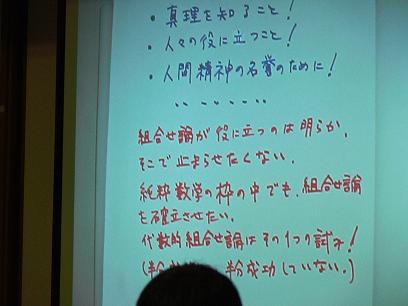 ・真理を知ること!
・人々の役に立つこと!
・人間精神の名誉のために!
・・・・・・・
組合せ論が役に立つのは明らか.
そこで止まらせたくない.
純粋数学の枠の中でも、組合せ論
を確立させたい.
代数的組合せ論はその1つの試み!
成功していない.)